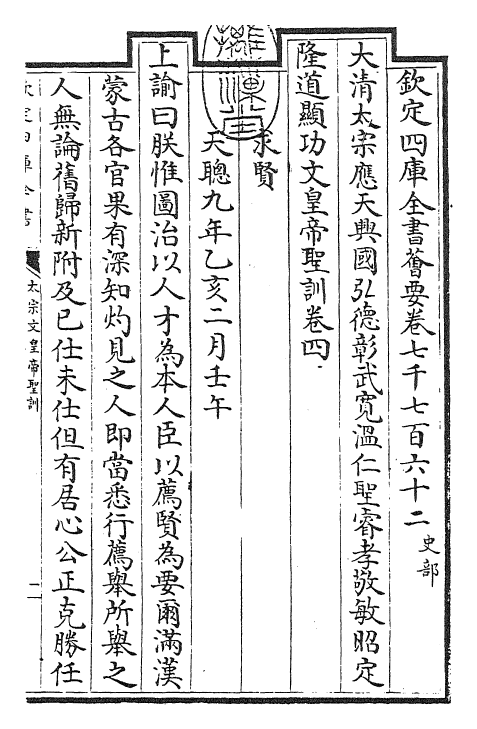 欽定四庫全書薈要卷七千七百六十二 史部
大清太宗應天興國弘德彰武寛溫仁聖睿孝敬敏昭定
隆道顯功文皇帝聖訓卷四
求賢
天聰九年乙亥二月壬午
上諭曰朕惟圖治以人才為本人臣以薦賢為要爾滿漢
蒙古各官果有深知灼見之人即當悉行薦舉所舉之
人無論舊歸新附及已仕未仕但有居心公正克勝任
太宗文皇帝聖訓